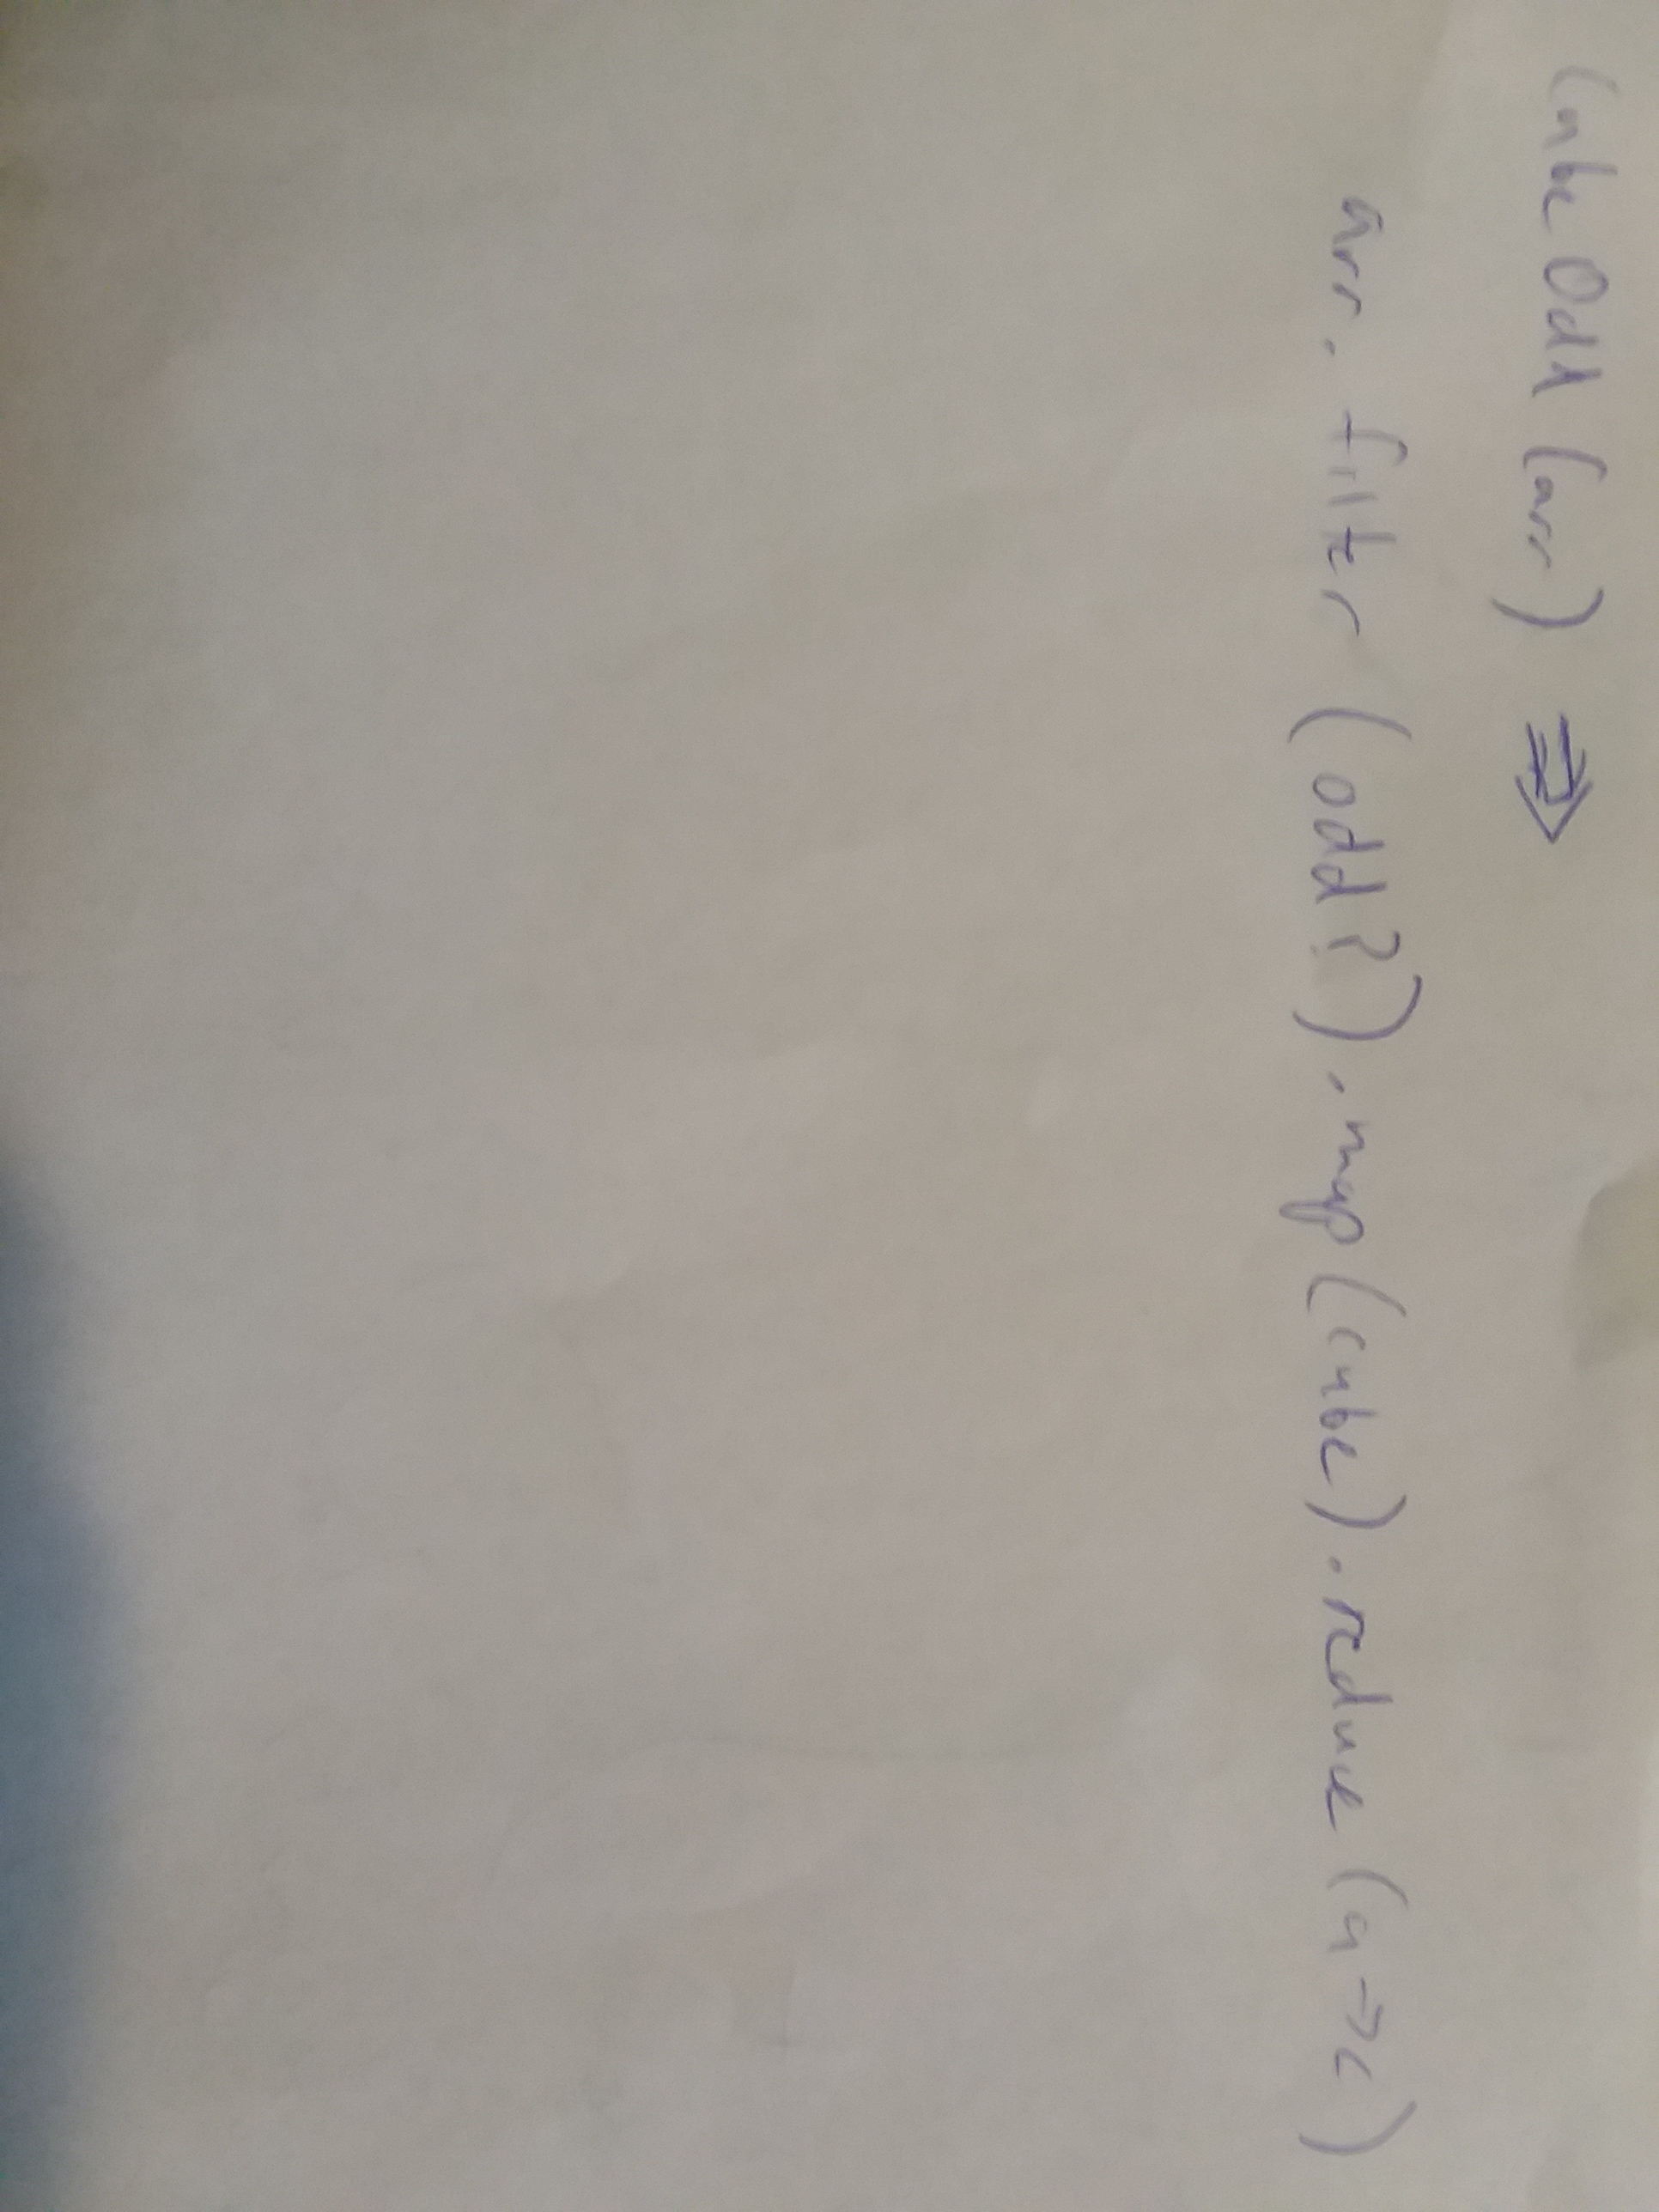 CubeOdd (arr) =>
arr. filter (odd?). map (cube). reduce (a->c)